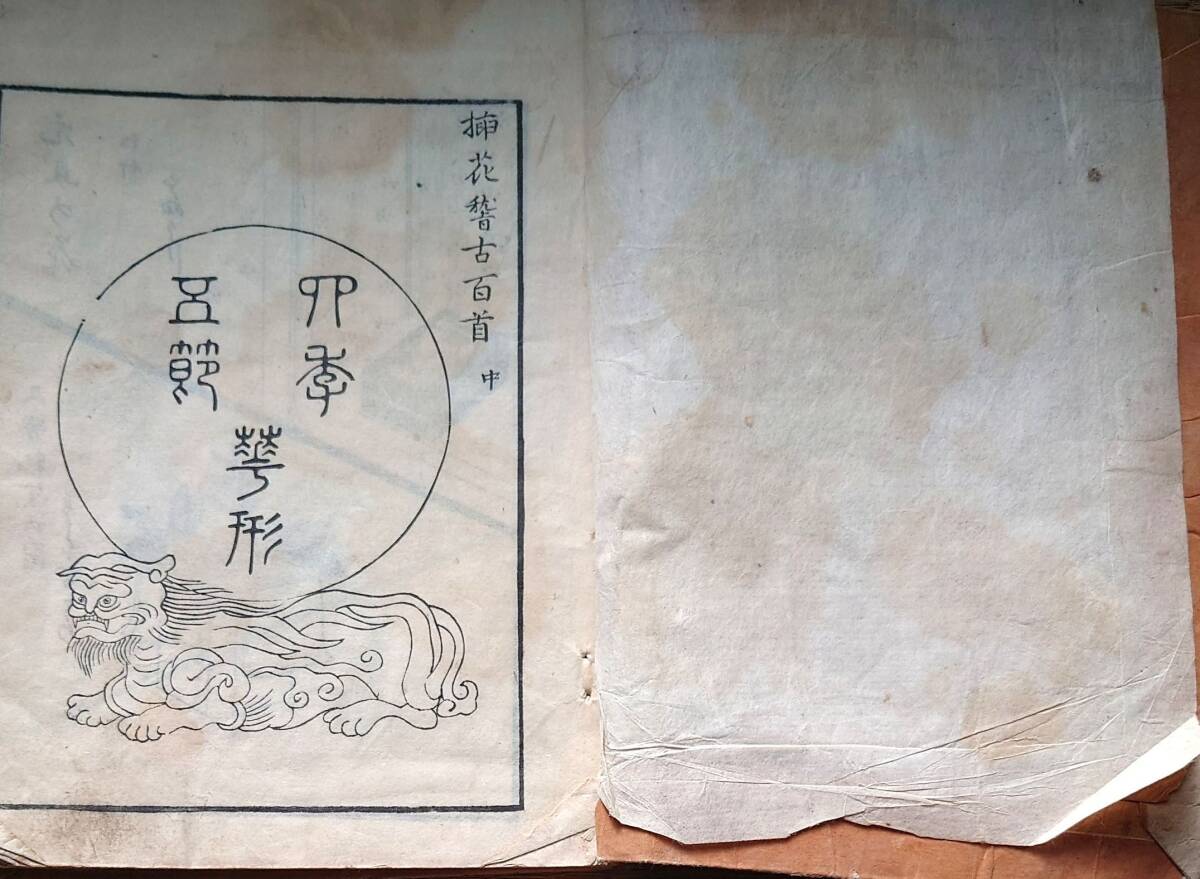 挿花稽古百首 中
四季
五節
華形